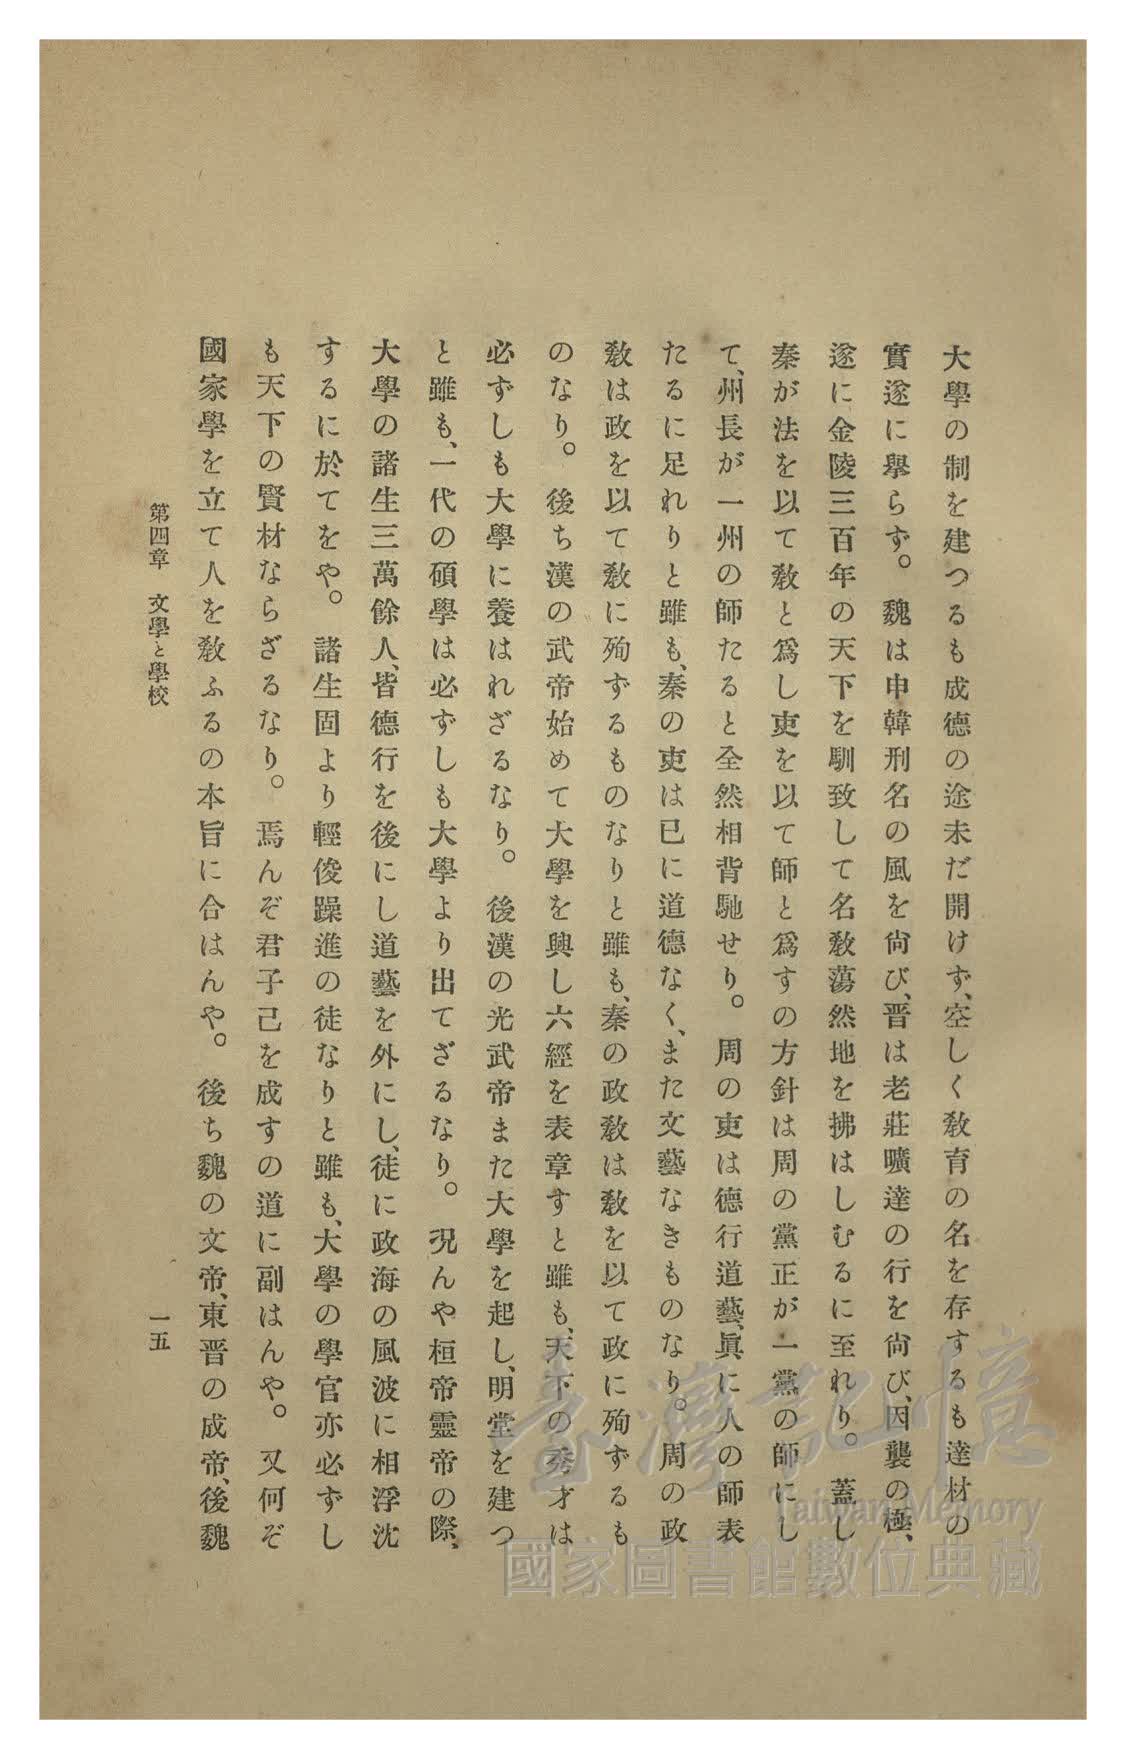 大學の制を建つるも成德の途未だ開けず、空しく敎育の名を存するも達材の
實遂に擧らず。魏は申韓刑名の風を尙び、晋は老莊曠達の行を尙び、因襲の極、
遂に金陵三百年の天下を馴致して名敎蕩然地を拂はしむるに至れり。蓋し
秦が法を以て敎と爲し吏を以て師と爲すの方針は周の黨正が一黨の師にし
て、州長が一州の師たると全然相背馳せり。周の吏は德行道藝、眞に人の師表
たるに足れりと雖も、秦の吏は已に道德なく、また文藝なきものなり。周の政
敎は政を以て敎に殉ずるものなりと雖も、秦の政敎は敎を以て政に殉ずるも
のなり。後ち漢の武帝始めて大學を興し六經を表章すと雖も、天下の秀才は
必ずしも大學に養はれざるなり。後漢の光武帝また大學を起し、明堂を建つ
と雖も、一代の碩學は必ずしも大學より出てざるなり。況んや桓帝靈帝の際、
大學の諸生三萬餘人、皆德行を後にし道藝を外にし、徒に政海の風波に相浮沈
するに於てをや。諸生固より輕俊躁進の徒なりと雖も、大學の學官亦必ずし
も天下の賢材ならざるなり。焉んぞ君子己を成すの道に副はんや。又何ぞ
國家學を立て人を敎ふるの本旨に合はんや。後ち魏の文帝、東晋の成帝、後魏
第四章 文學と學校
一五
臺灣記憶
Taiwan Memory
國家圖書館數位典藏